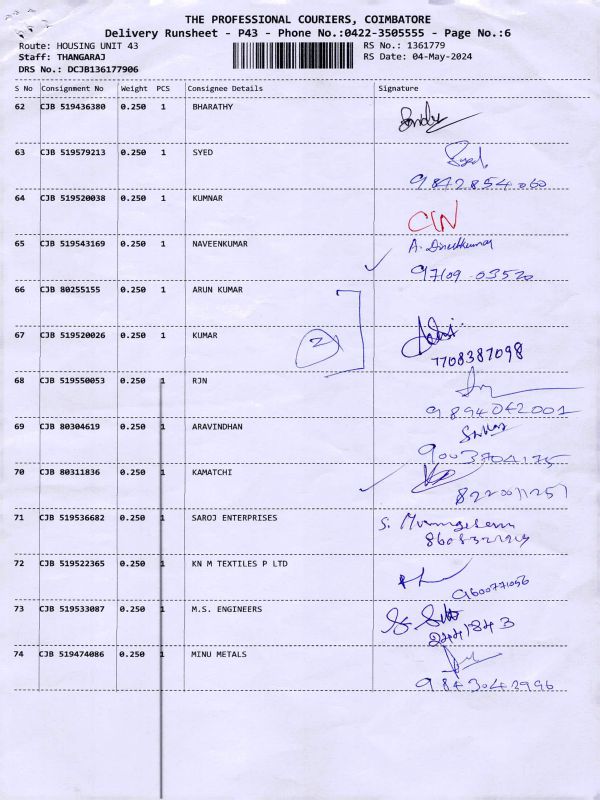 THE PROFESSIONAL COURIERS, COIMBATORE
Delivery Runsheet - P43 - Phone No.:0422-3505555 - Page No.:6
Route: HOUSING UNIT 43
RS No.: 1361779
Staff: THANGARAJ
RS Date: 04-May-2024
DRS No.: DCJB136177906
S No Consignment No Weight PCS Consignee Details Signature
62 CJB 519436380 0.250 1 BHARATHY
63 CJB 519579213 0.250 1 SYED Syed
9842854060
64 CJB 519520038 0.250 1 KUMNAR
65 CJB 519543169 0.250 1 NAVEENKUMAR A. Dineshkumar
97109-03520
66 CJB 80255155 0.250 1 ARUN KUMAR
67 CJB 519520026 0.250 1 KUMAR 2
7708387098
68 CJB 519550053 0.250 1 RJN
9894042001
69 CJB 80304619 0.250 1 ARAVINDHAN
9003704175
70 CJB 80311836 0.250 1 KAMATCHI
8220011251
71 CJB 519536682 0.250 1 SAROJ ENTERPRISES S. Murugesan
72 CJB 519522365 0.250 1 KN M TEXTILES P LTD
9600771056
73 CJB 519533087 0.250 1 M.S. ENGINEERS
2441843
74 CJB 519474086 0.250 1 MINU METALS
9843042996